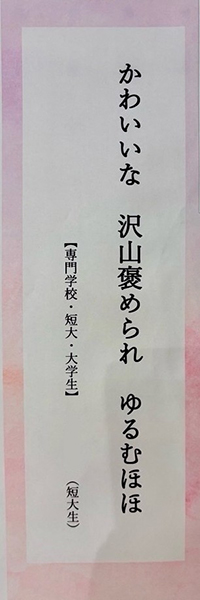 かわいいな　沢山褒められ　ゆるむほほ
【専門学校・短大・大学生】　（短大生）